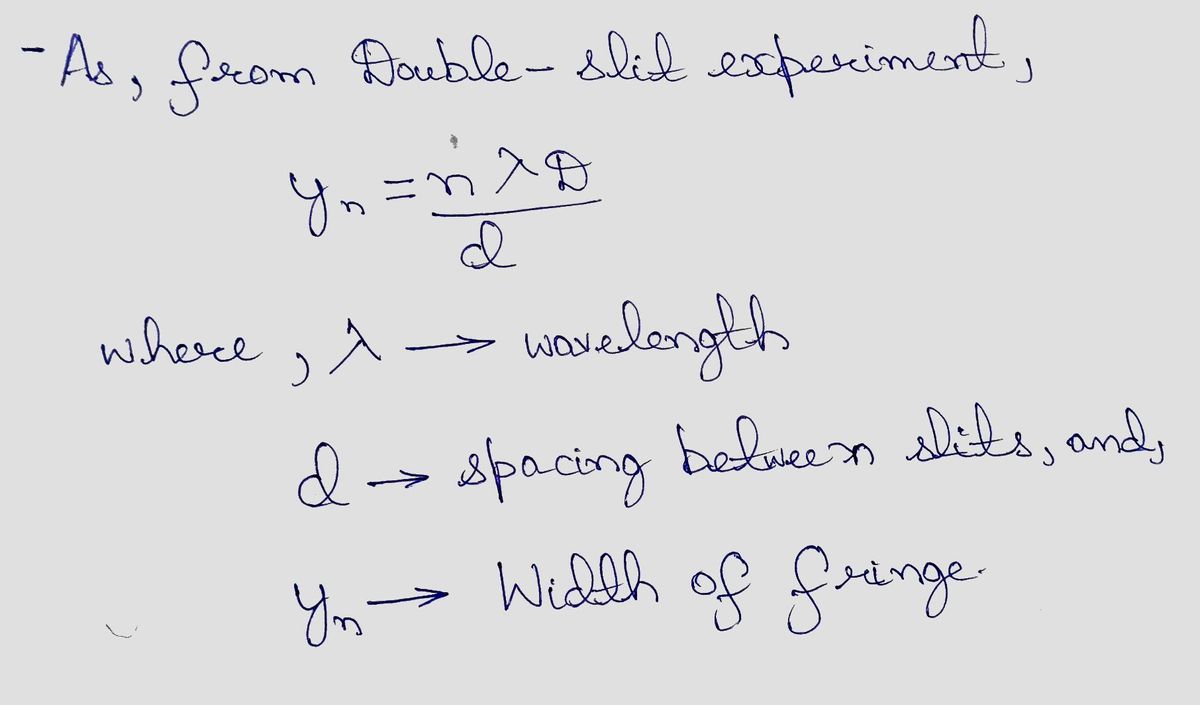 - As, from Double-slit experiment,
yₙ = nλD
d
where, λ → wavelength
d → spacing between slits, and,
yₙ → Width of fringe.